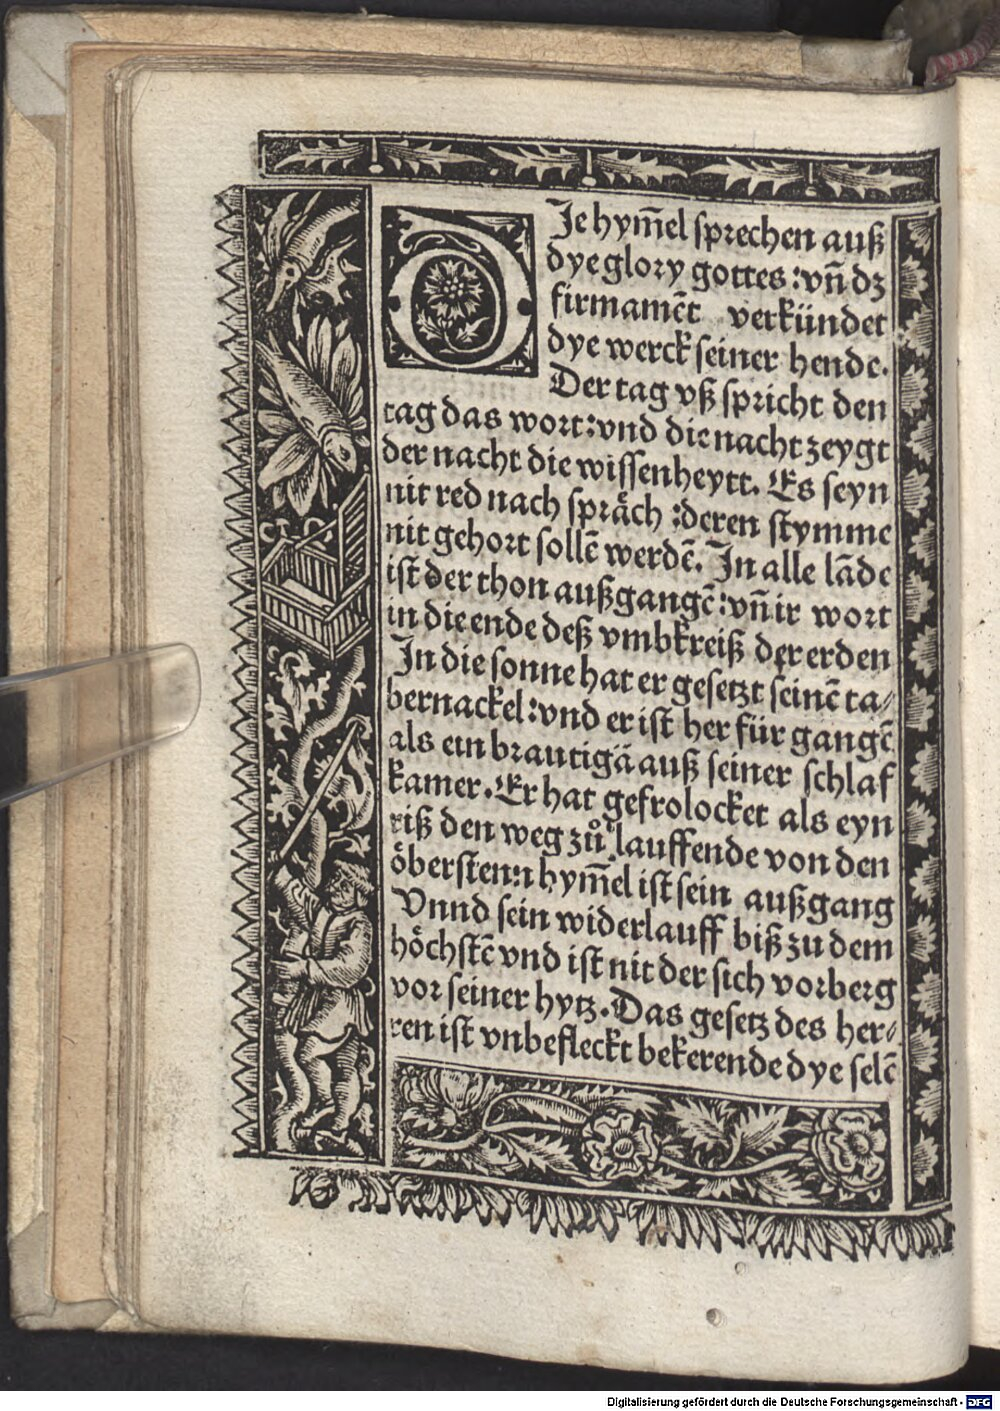 DJe hym̄el sprechen auß
dye glory gottes : vn̄ dz
firmamēt verkündet
dye werck seiner hende.
Der tag vß spricht den
tag das wort : vnd die nacht zeygt
der nacht die wissenheytt. Es seyn
nit red nach språch : deren stymme
nit gehort sollē werdē. Jn alle lāde
ist der thon außgangē : vn̄ ir wort
in die ende deß vmbkreiß der erden
Jn die sonne hat er gesetzt seinē ta⸗
bernackel : vnd er ist her für gangē
als ein brautigā auß seiner schlaf
kamer. Er hat gefrolocket als eyn
riß den weg zů lauffende von den
öberstenn hym̄el ist sein außgang
Vnnd sein widerlauff biß zu dem
höchstē vnd ist nit der sich vorberg
vor seiner hytz. Das gesetz des her⸗
ren ist vnbefleckt bekerende dye selē
Digitalisierung gefördert durch die Deutsche Forschungsgemeinschaft - DFG